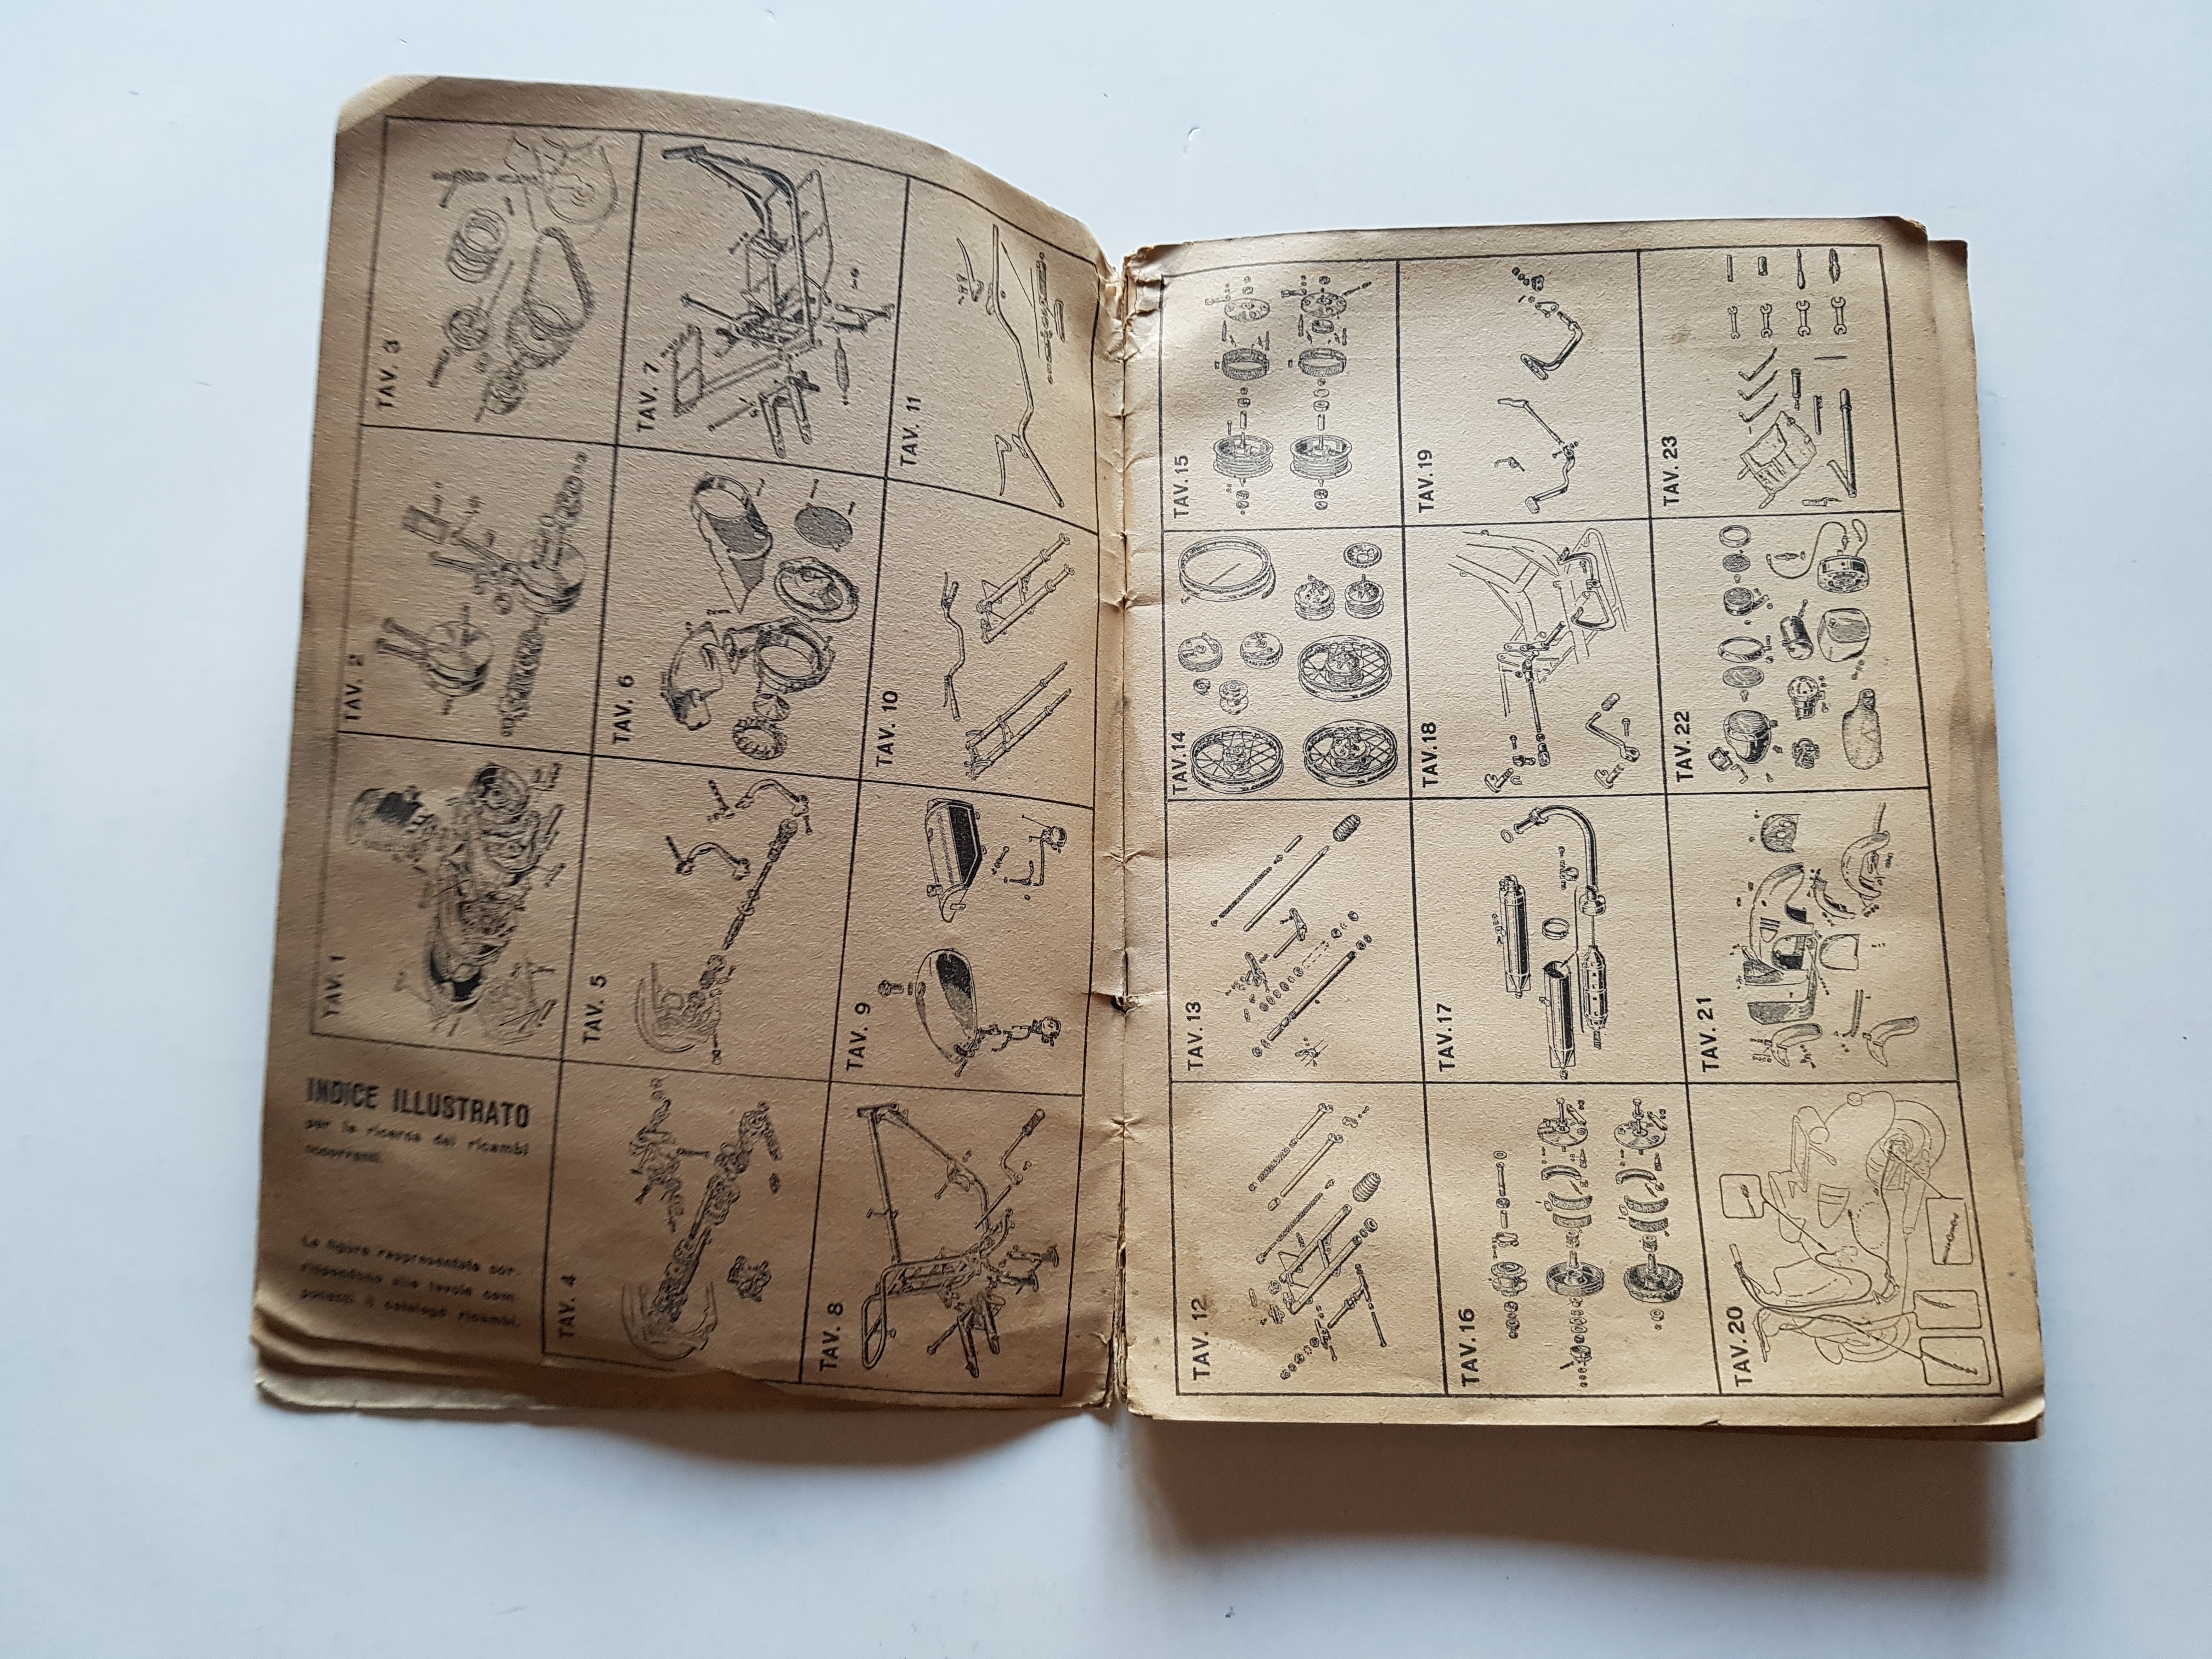 INDICE ILLUSTRATO
per la ricerca dei ricambi
occorrenti.
Le figure rappresentate cor-
rispondono alle tavole com-
ponenti il catalogo ricambi.
TAV. 1
TAV. 2
TAV. 3
TAV. 4
TAV. 5
TAV. 6
TAV. 7
TAV. 8
TAV. 9
TAV. 10
TAV. 11
TAV. 12
TAV. 13
TAV. 14
TAV. 15
TAV. 16
TAV. 17
TAV. 18
TAV. 19
TAV. 20
TAV. 21
TAV. 22
TAV. 23